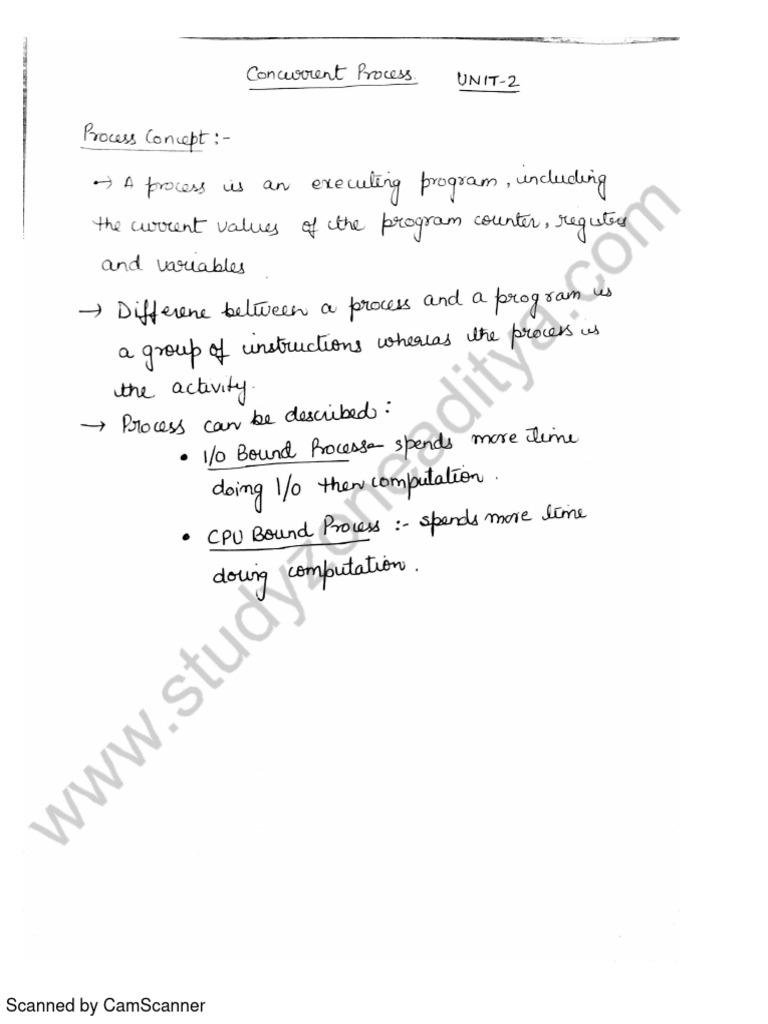 Concurrent Process. UNIT-2
Process Concept :-
→ A process is an executing program, including
the current values of the program counter, registers
and variables.
→ Differene between a process and a program is
a group of instructions whereas the process is
the activity.
→ Process can be described :
• I/O Bound Process - spends more time
doing I/O then computation.
• CPU Bound Process :- spends more time
doing computation.
www.studyzoneaditya.com
Scanned by CamScanner